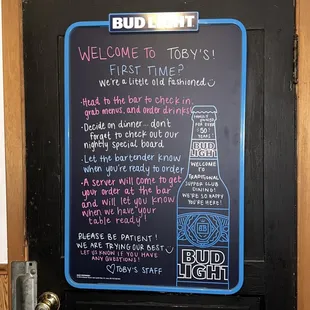 BUD LIGHT
WELCOME TO TOBY'S!
FIRST TIME?
We're a little old fashioned
- Head to the bar to check in,
grab menus, and order drinks!
- Decide on dinner... don't
forget to check out our
nightly special board
- Let the bartender know
when you're ready to order
- A server will come to get
your order at the bar
and will let you know
when we have your
table ready!
PLEASE BE PATIENT!
WE ARE TRYING OUR BEST
LET US KNOW IF YOU HAVE
ANY QUESTIONS!
TOBY'S STAFF
FAMILY OWNED
FOR OVER
50
YEARS
BUD
LIGHT
WELCOME
TO
TRADITIONAL
SUPPER CLUB
DINING!
WE'RE SO HAPPY
YOU'RE HERE!
BUD
LIGHT